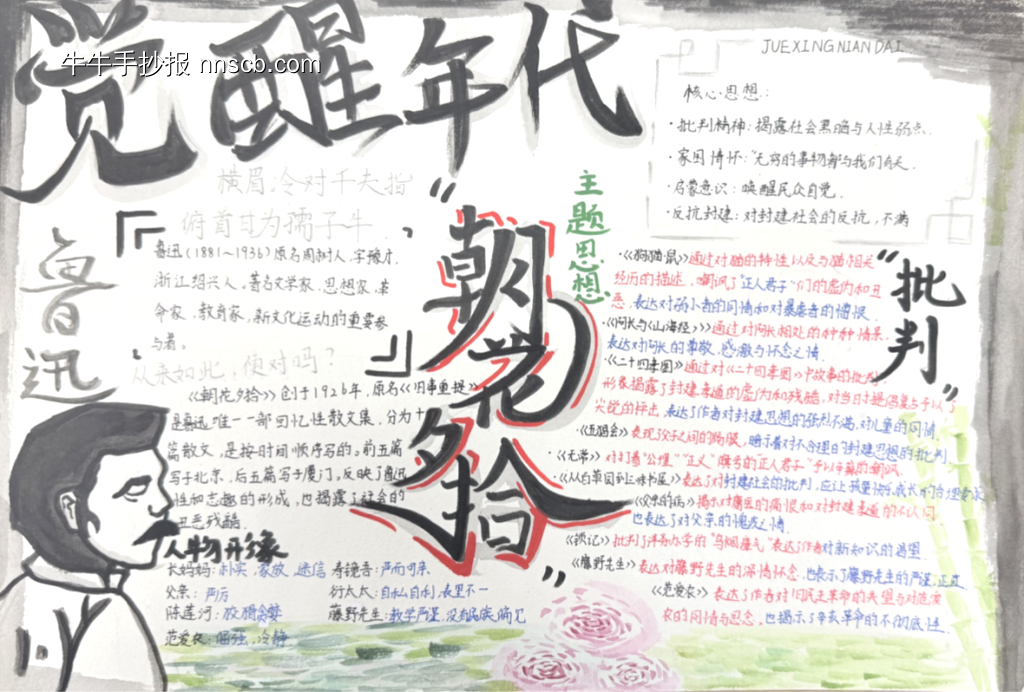 觉醒年代
牛牛手抄报 nnscb.com
JUEXING NIAN DAI
核心思想:
·批判精神:揭露社会黑暗与人性弱点.
·家国情怀:"无穷的事物都与我们有关.
·启蒙意识:唤醒民众自觉.
·反抗封建:对封建社会的反抗,不满
横眉冷对千夫指
俯首甘为孺子牛
鲁迅
鲁迅(1881~1936)原名周树人,字豫才,
浙江绍兴人。著名文学家、思想家、革
命家、教育家,新文化运动的重要参
与者。
从来如此,便对吗?
《朝花夕拾》创于1926年,原名《旧事重提》
是鲁迅唯一一部回忆性散文集,分为十
篇散文,是按时间顺序写的。前五篇
写于北京,后五篇写于厦门,反映了鲁迅
性和志趣的形成,也揭露了社会的
丑恶残酷.
人物形象
长妈妈:朴实、家敬、迷信 寿镜吾:严而可亲.
父亲:严厉 衍太太:自私自利,表里不一
陈莲河: 藤野先生:教学严谨,没有民族偏见
范爱农:倔强,冷静
"朝花夕拾"
主题思想
"批判"
·《狗·猫·鼠》通过对猫的特性以及与猫相关
经历的描述,嘲讽了"正人君子"们的虚伪和丑
恶,表达对弱小者的同情和对暴虐者的憎恨.
·《阿长与《山海经》》通过对阿长相处的种种情景,
表达对阿长的尊敬,感激与怀念之情.
·《二十四孝图》通过对《二十四孝图》中故事的批判,
形象揭露了封建孝道的虚伪和残酷,对当时提倡复古予以了
尖锐的抨击,表达了作者对封建思想的强烈不满,对儿童的同情.
·《五猖会》表现父子之间的隔膜,暗示着对不合理的封建思想的批判.
·《无常》对打着"公理""正义"旗号的"正人君子"予以辛辣的嘲讽.
·《从百草园到三味书屋》表达了对封建社会的批判,应让孩童快乐成长
·《父亲的病》揭示对庸医的痛恨和对封建孝道的不认同,
也表达了对父亲的愧疚之情.
《琐记》批判了洋务办学的"乌烟瘴气"表达了作者对新知识的渴望.
《藤野先生》表达对藤野先生的深情怀念,也表示了藤野先生的严谨,正直
《范爱农》表达了作者对旧民主革命的失望与对范爱
农的同情与思念,也揭示了辛亥革命的不彻底性.